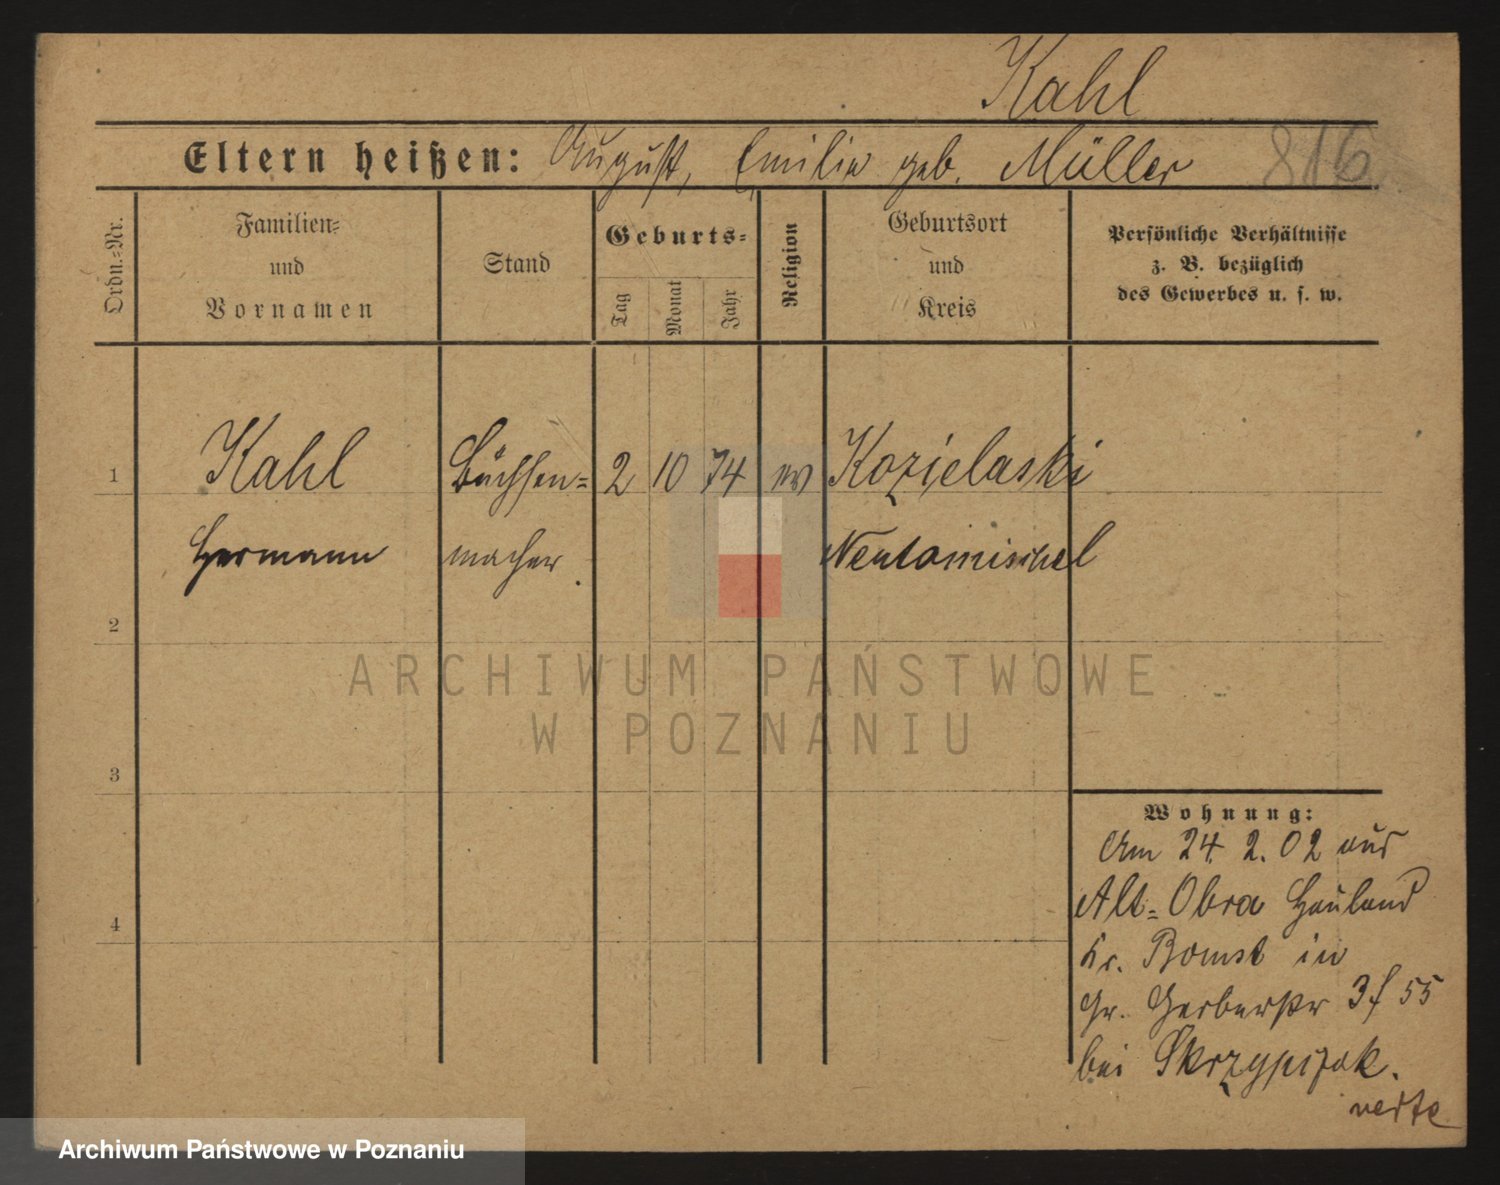 Kahl
Eltern heißen: August, Emilie geb. Müller 816
Ordn.-Nr.
Familien-
und
Vornamen
Stand
Geburts-
Tag
Monat
Jahr
Religion
Geburtsort
und
Kreis
Persönliche Verhältnisse
z. B. bezüglich
des Gewerbes u. s. w.
1 Kahl Büchsen- 2 10 74 ev Kozielaski
Hermann macher. Neutomischel
2
ARCHIWUM PAŃSTWOWE
W POZNANIU
3
Wohnung:
Am 24. 2. 02 aus
Alt-Obra Hauland
Kr. Bomst in
4
Gr. Gerberstr 55
bei
verte
Archiwum Państwowe w Poznaniu